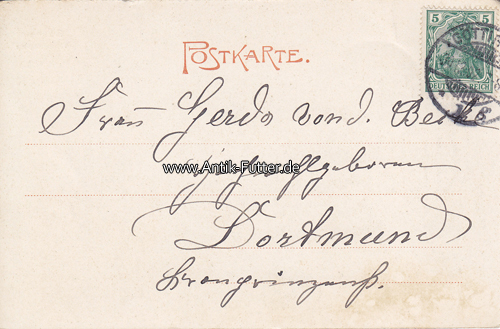 POSTKARTE.
5 5
DEUTSCHES REICH
Frau Gerda von d. Becke
www.Antik-Futter.de
Hochwohlgeboren
Dortmund
Kronprinzenstr.